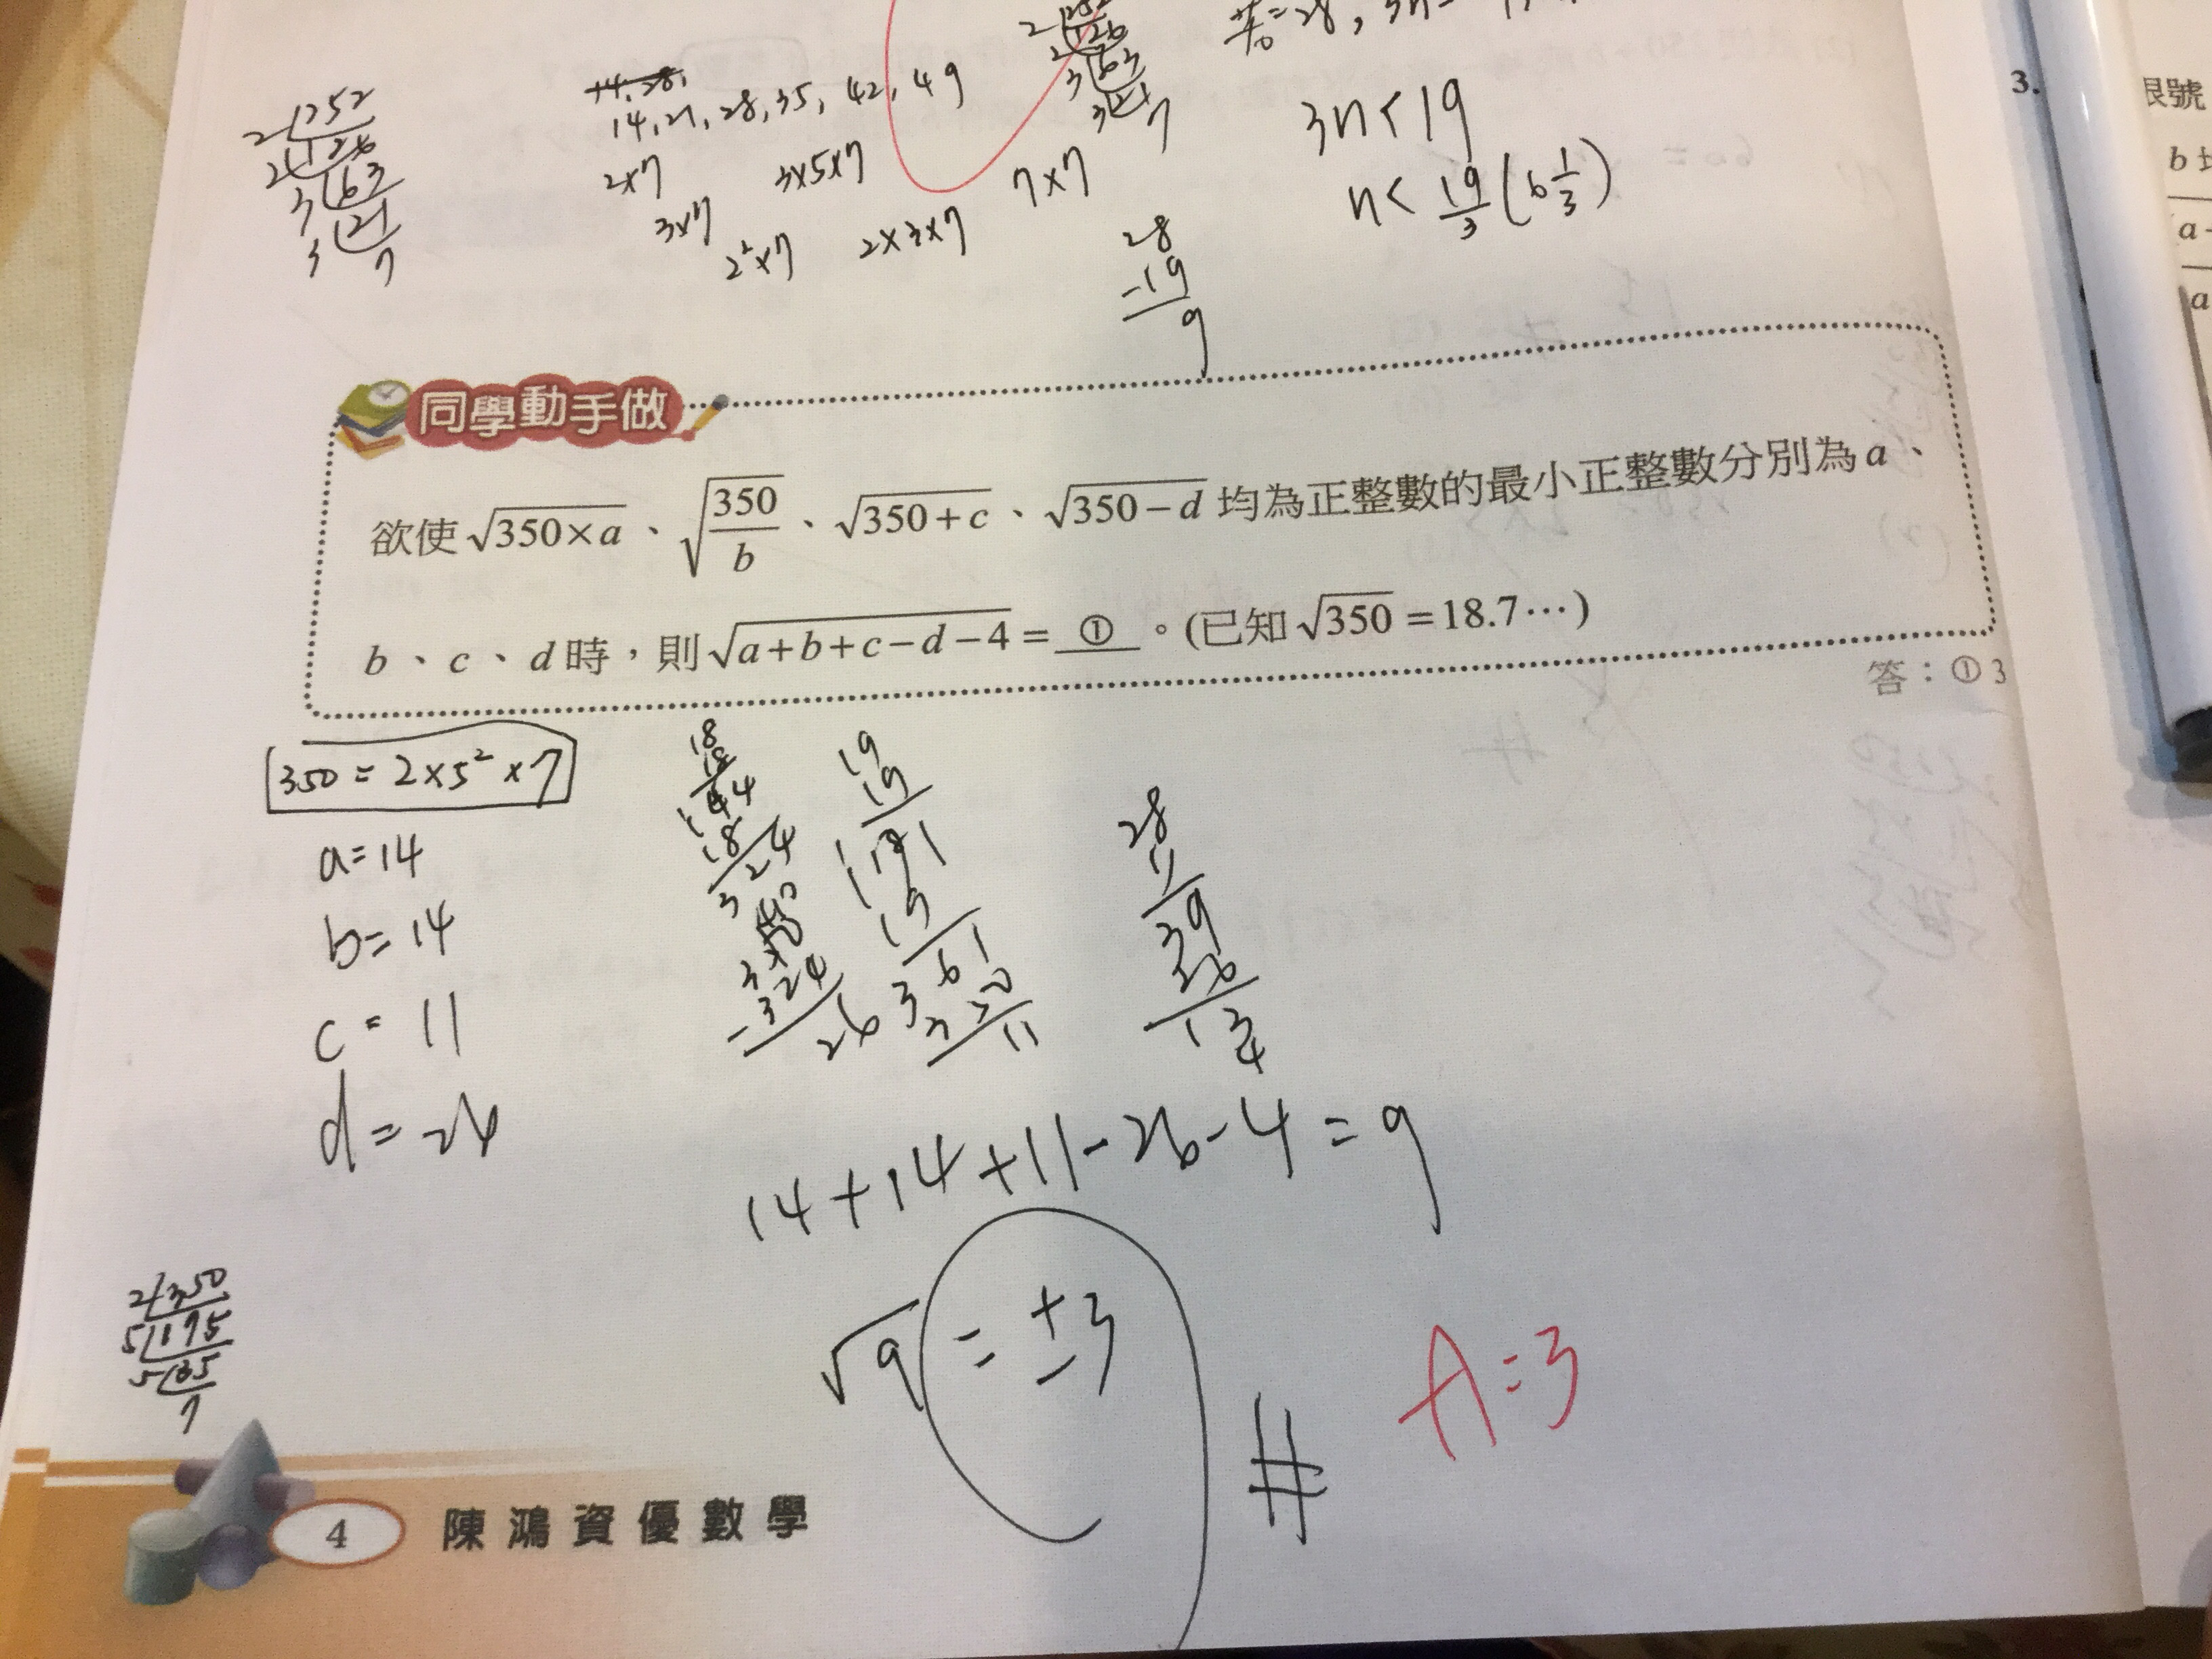 2 252
2 126
3 63
3 21
7
14, 28,
14, 21, 28, 35, 42, 49
2×7
3×7
2²×7
3×5×7
2×3×7
7×7
2 252
2 126
3 63
3 21
7
28
-19
9
3n<19
n<19/3(6 1/3)
3.
根號
同學動手做
欲使√(350×a)、√(350/b)、√(350+c)、√(350-d)均為正整數的最小正整數分別為a、
b、c、d時，則√(a+b+c-d-4)=①。(已知√350=18.7⋯)
答：①3
350=2×5²×7
a=14
b=14
c=11
d=26
18
18
144
18
324
350
-324
26
19
19
171
19
361
350
11
28
11
39
26
13
4
14+14+11-26-4=9
√9=±3
A=3
2 350
5 175
5 35
7
4 陳鴻資優數學